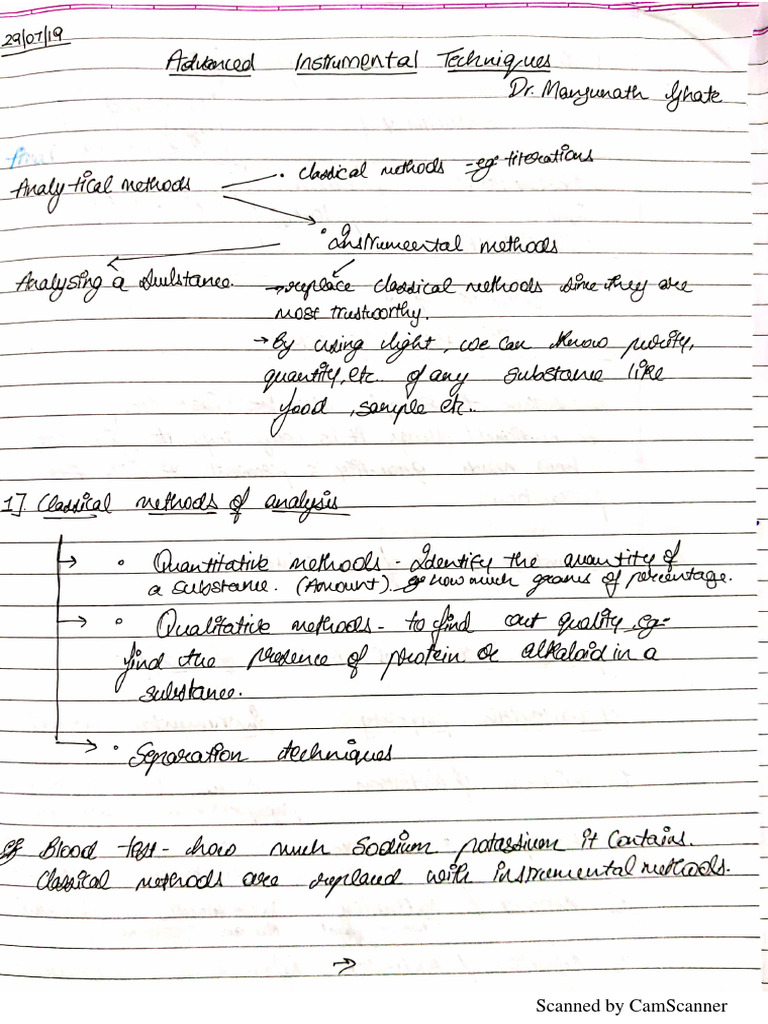 29/07/19
Advanced Instrumental Techniques
Dr. Manjunath Ghate
Analytical methods
• Classical methods - eg: titerations
• Instrumeental methods
Analysing a Substance.
→ replace classical methods since they are
most trustworthy.
→ By using light, we can know purity,
quantity, etc. of any substance like
food, sample etc..
1]. Classical methods of analysis
→ • Quantitative methods - Identify the quantity of
a substance. (Amount). how much grams of percentage.
→ • Qualitative methods - to find out quality, eg-
find the presence of protein or alkaloid in a
substance.
→ • Separation techniques
Blood test - how much Sodium potassium it contains.
Classical methods are replaced with instrumental methods.
→
Scanned by CamScanner